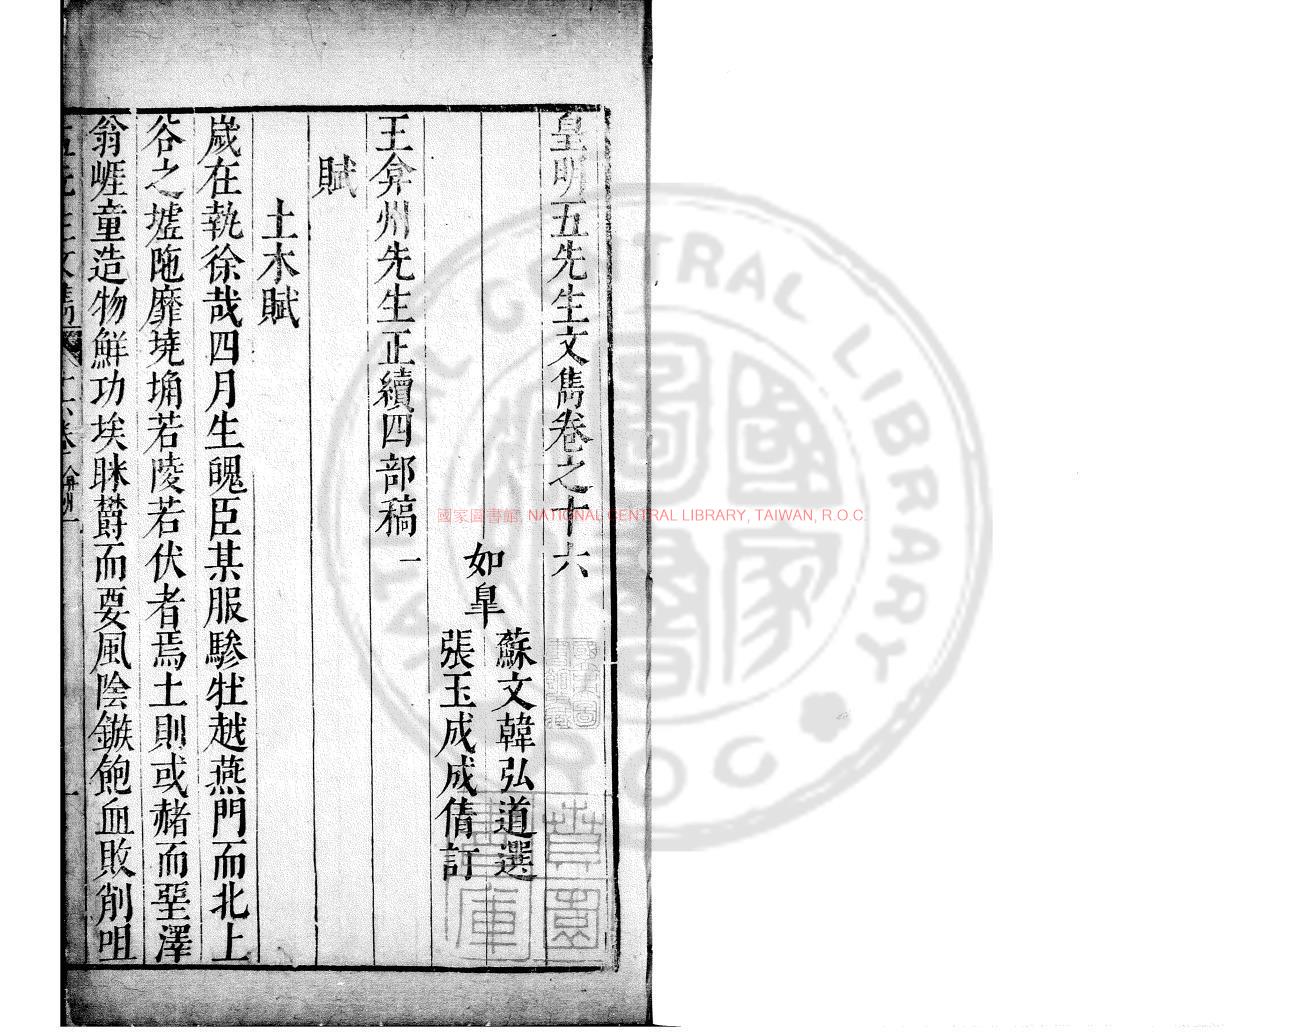 皇明五先生文雋卷之十六
如皐
蘇文韓弘道選
張玉成成倩訂
王弇州先生正續四部稿 一
賦
土木賦
嵗在執徐哉四月生魄臣某服驂牡越燕門而北上
谷之墟陁靡墝埆若陵若伏者焉土則或赭而堊澤
翁崕童造物鮮功埃眯欝而耍風陰鏃飽血敗削咀
國家圖書館, NATIONAL CENTRAL LIBRARY, TAIWAN, R.O.C.
NATIONAL CENTRAL LIBRARY